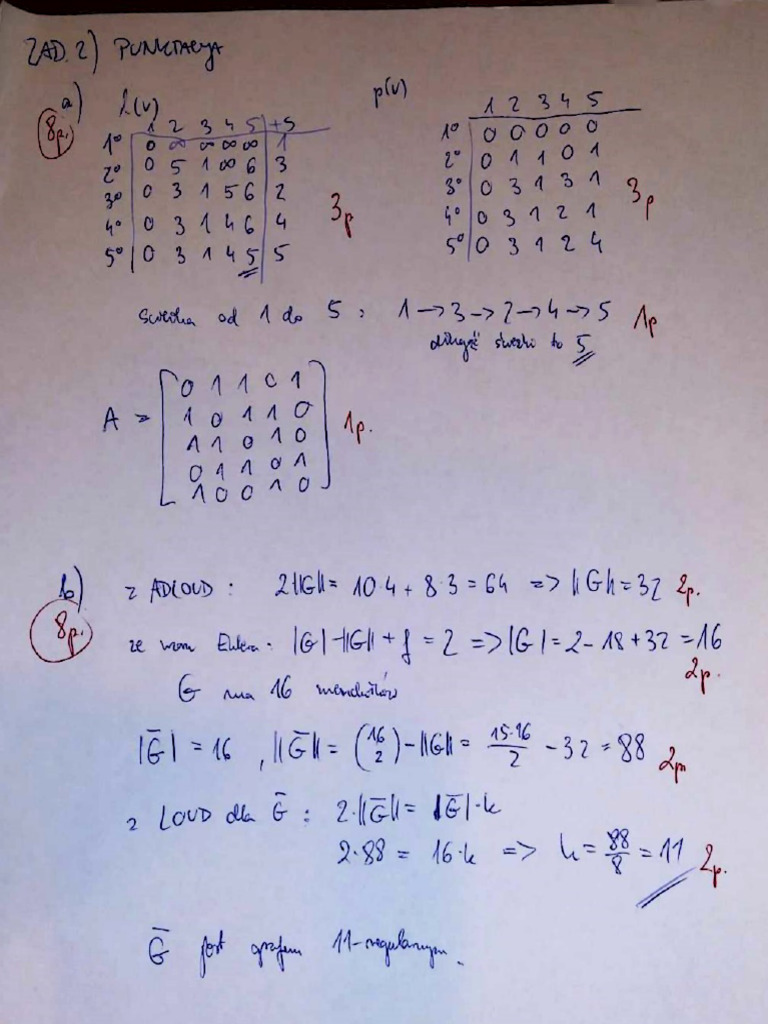 ZAD. 2) PUNKTACJA
a) 8p.
L(v)
1 2 3 4 5 +S
1° 0 ∞ ∞ ∞ ∞ 1
2° 0 5 1 ∞ 6 3
3° 0 3 1 5 6 2
4° 0 3 1 4 6 4
5° 0 3 1 4 5 5
3p
p(v)
1 2 3 4 5
1° 0 0 0 0 0
2° 0 1 1 0 1
3° 0 3 1 3 1
4° 0 3 1 2 1
5° 0 3 1 2 4
3p
Ścieżka od 1 do 5: 1 → 3 → 2 → 4 → 5 1p
długość ścieżki to 5
A = [
0 1 1 0 1
1 0 1 1 0
1 1 0 1 0
0 1 1 0 1
1 0 0 1 0
] 1p.
b) 8p.
z ADLOUD: 2||G|| = 10·4 + 8·3 = 64 => ||G|| = 32 2p.
ze wzoru Eulera: |G| - ||G|| + f = 2 => |G| = 2 - 18 + 32 = 16
2p.
G ma 16 wierzchołków
|G̅| = 16, ||G̅|| = (16 2) - ||G|| = 15·16/2 - 32 = 88 2p
z LOUD dla G̅: 2·||G̅|| = |G̅|·k
2·88 = 16·k => k = 88/8 = 11 2p.
G̅ jest grafem 11-regularnym.